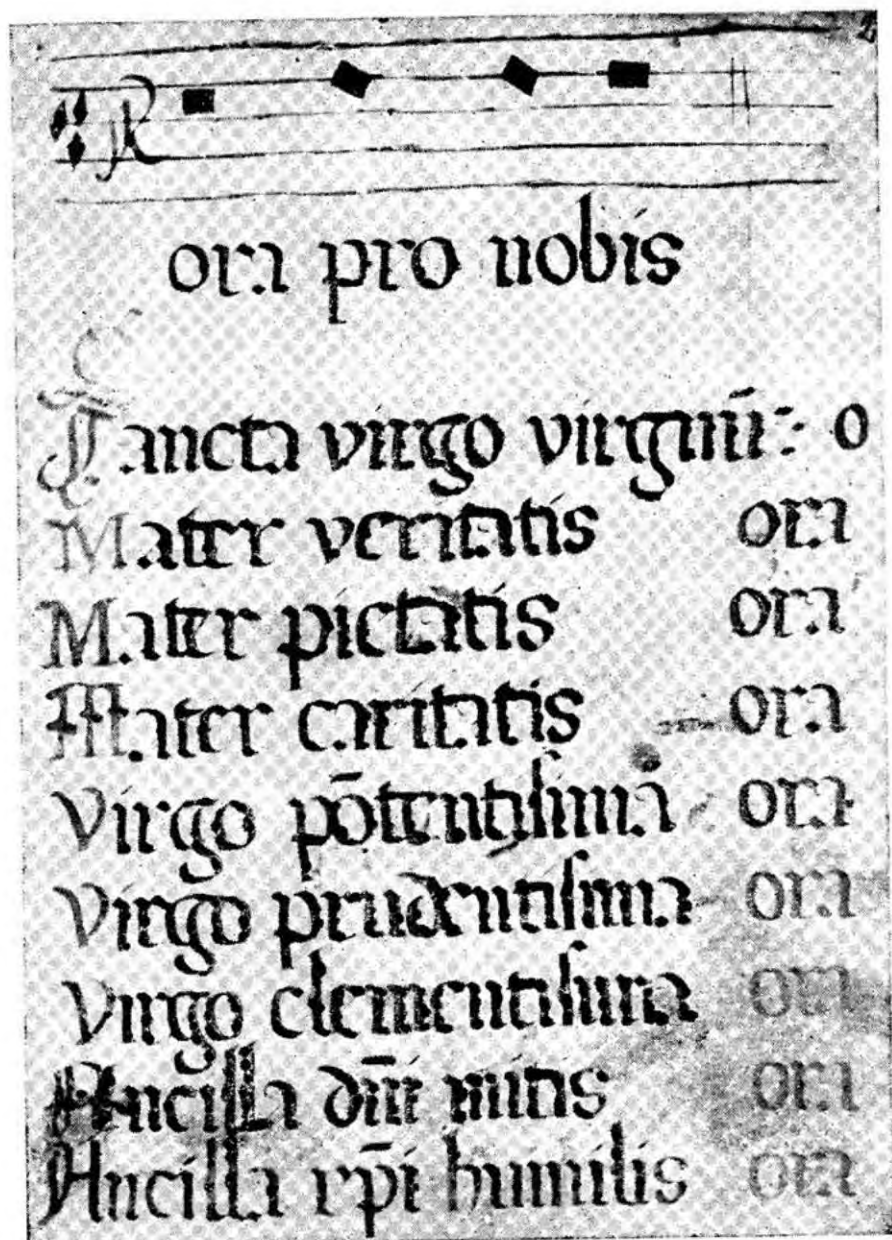 R
ora pro nobis
Sancta virgo virginū: o
Mater veritatis ora
Mater pietatis ora
Mater caritatis ora
Virgo pōtentisima ora
Virgo prudentisima ora
Virgo clementisima ora
Ancilla dn̄i mitis ora
Ancilla xp̄i humilis ora